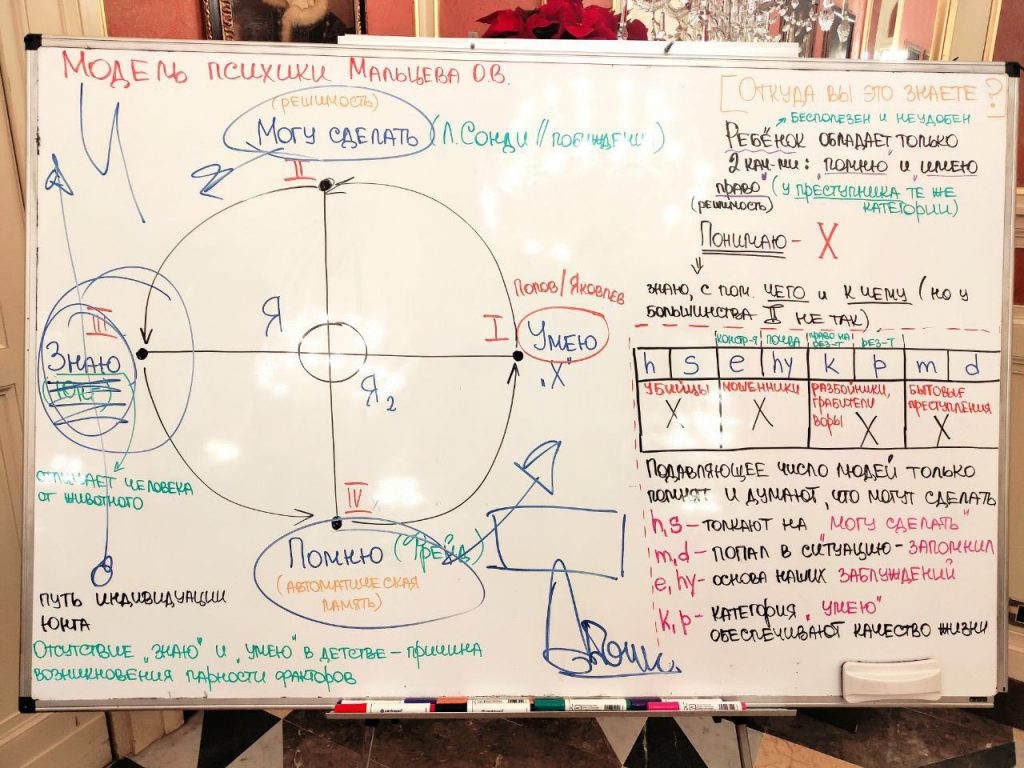 Модель психики Мальцева О.В.
(решимость)
Могу сделать (Л. Сонди//побуждени.)
II
III
Знаю
(Юнг)
отличает человека
от животного
Я
Я₂
I
Попов/Яковлев
Умею
„X"
IV
Помню (Фрейд)
(автоматическая
память)
путь индивидуации
Юнга
Отсутствие „знаю" и „умею" в детстве – причина
возникновения парности факторов
[Откуда вы это знаете?
бесполезен и неудобен
Ребёнок обладает только
2 кач-ми: "помню" и "имею
право" (у преступника те же
категории)
(решимость)
Понимаю – X
знаю, с пом. чего и к чему (но у
большинства II не так)
контр-я помда право на рез-т рез-т
h s e hy k p m d
убийцы мошенники разбойники, грабители воры бытовые преступления
X X X X
Подавляющее число людей только
помнят и думают, что могут сделать
h,s – толкают на "могу сделать"
m,d – попал в ситуацию – запомнил
e,hy – основа наших заблуждений
k,p – категория „умею"
обеспечивают качество жизни